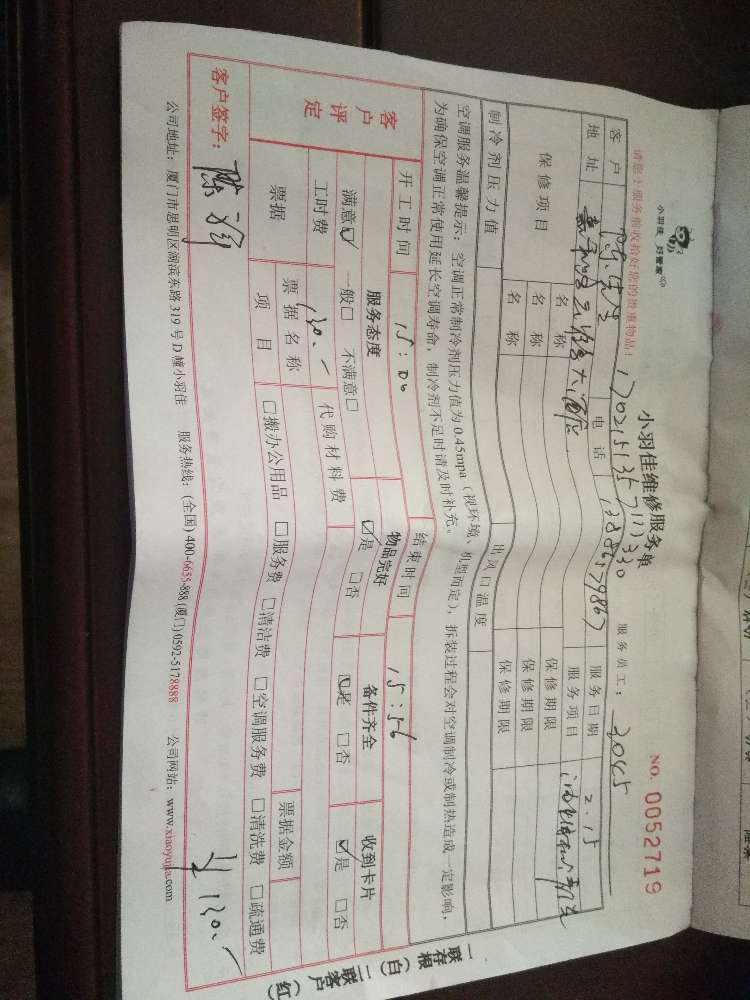 小羽佳 好管家
小羽佳维修服务单
NO. 0052719
请您于服务前收拾好您的贵重物品!
服务员工: 2045
客户 陈先生 电话 服务日期 2.15
地址 服务项目
保修项目 名称 保修期限
名称 保修期限
名称 保修期限
制冷剂压力值 出风口温度
空调服务温馨提示:空调正常制冷剂压力值为0.45mpa(视环境、机型而定),拆装过程会对空调制冷或制热造成一定影响,
为确保空调正常使用延长空调寿命,制冷剂不足时请及时补充。
开工时间 15:06 结束时间 15:56
客户评定 服务态度 物品完好 备件齐全 收到卡片
满意☑ 一般□ 不满意□ ☑是 □否 ☑是 □否 ☑是 □否
工时费 130.- 代购材料费
票据 票据名称 票据金额
项目 □搬办公用品 □服务费 □清洁费 □空调服务费 □清洗费 □疏通费
客户签字: ¥130.-
公司地址:厦门市思明区湖滨东路319号D幢小羽佳 服务热线:(全国)400-6655-888(厦门)0592-5178888 公司网站:www.xiaoyujia.com
一联存根(白)二联客户(红)